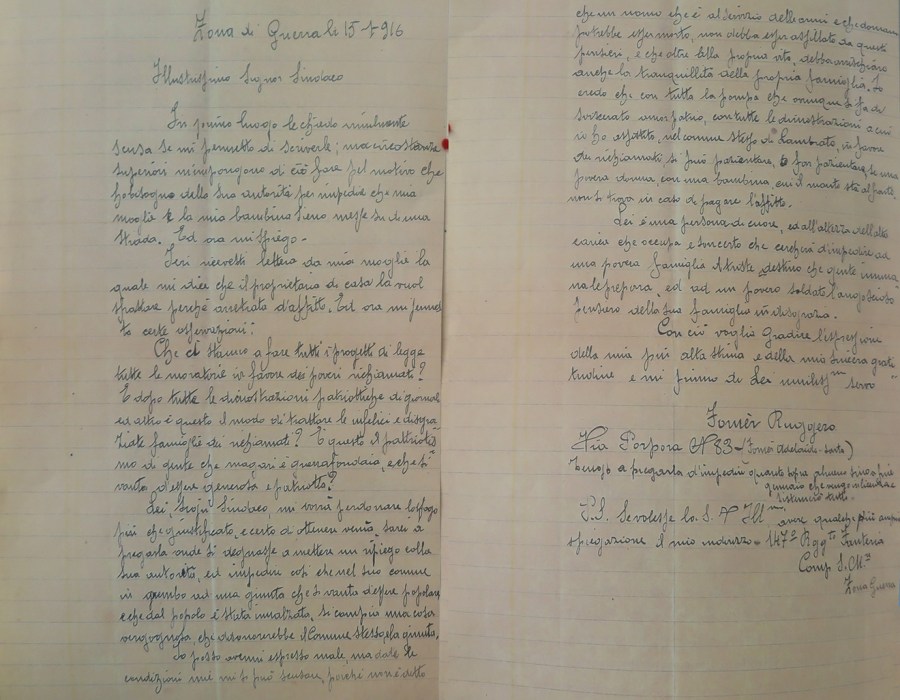 Zona di Guerra li 15-1-916
Illustrissimo Signor Sindaco
In primo luogo le chiedo umilmente
scusa se mi permetto di scriverle; ma circostanze
superiori m'impongono di ciò fare pel motivo che
ho bisogno della sua autorità per impedire che mia
moglie e la mia bambina sieno messe su di una
strada. Ed ora mi spiego.
Ieri ricevetti lettera da mia moglie la
quale mi dice che il proprietario di casa la vuol
sfrattare perchè arretrata d'affitto. Ed ora mi
certe osservazioni:
Che ci stanno a fare tutti i progetti di legge
tutte le moratorie in favore dei poveri richiamati?
E dopo tutte le dimostrazioni patriottiche di giornali
ed altro è questo il modo di trattare le infelici e disgra-
ziate famiglie dei richiamati? È questo il patriottis-
mo di gente che magari è guerrafondaia, e che si
vanta d'essere generosa e patriotta?
Lei Sig. Sindaco, mi vorrà perdonare lo sfogo
più che giustificato, e certo di ottenere venia, sarei a
pregarla onde si degnasse a mettere un ripiego colla
sua autorità, ed impedire così che nel suo comune
in grembo ad una giunta che si vanta d'essere popolare
e che dal popolo è stata innalzata, si compia una cosa
vergognosa, che disonorerebbe il Comune stesso, e la giunta.
Io posso avermi espresso male, ma date le
condizioni mie mi si può scusare, perchè non è detto
che un uomo che è al servizio delle armi e che domani
potrebbe esser morto, non debba esser assillato da questi
pensieri, e che oltre alla propria vita, debba arrischiare
anche la tranquillità della propria famiglia. Io
credo che con tutta la pompa che ovunque si fa de
amor patrio, con tutte le dimostrazioni a cui
io ho assistito, nel comune stesso di Lambrate, in favore
dei richiamati si può pazientare, o far pazientare, se una
povera donna, con una bambina, cui il marito sta al fronte
non si trova in caso di pagare l'affitto.
Lei è una persona di cuore, ed all'altezza dell'alta
carica che occupa e son certo che cercherà d'impedire ad
una povera famiglia il triste destino che gente
le prepara, ed ad un povero soldato l'angoscioso
pensiero della sua famiglia in disgrazia.
Con ciò voglia gradire l'espressione
della mia più alta stima e della mia sincera grati-
tudine e mi firmo di Lei umiliss^mo servo
Fornèr Ruggero
Via Porpora N° 83 - (Fornèr Adelaide - sarta)
Tornoso a pregarla d'impedire quanto sopra almeno sino a fine
gennaio che vengo in licenza e
tutto.
P.S. Se volesse la S. V. Ill^ma avere qualche più ampia
spiegazione il mio indirizzo = 147° Regg^to Fanteria
Comp. S.M.^a
Zona Guerra